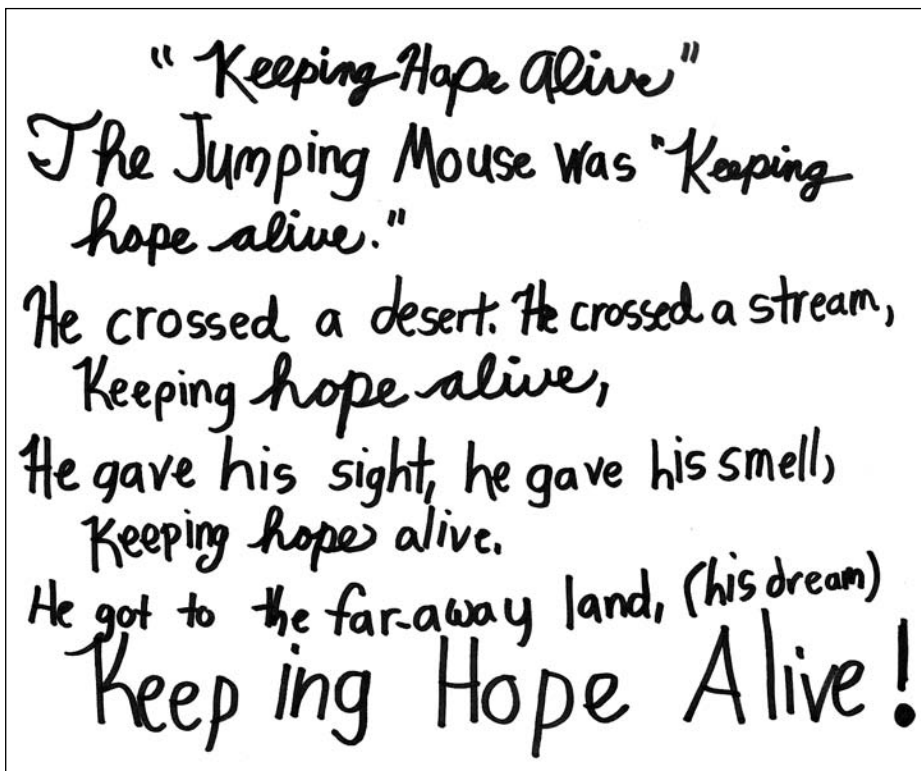 "Keeping Hope Alive"
The Jumping Mouse was "Keeping
hope alive."
He crossed a desert. He crossed a stream,
Keeping hope alive,
He gave his sight, he gave his smell,
Keeping hope alive.
He got to the far-away land, (his dream)
Keeping Hope Alive!